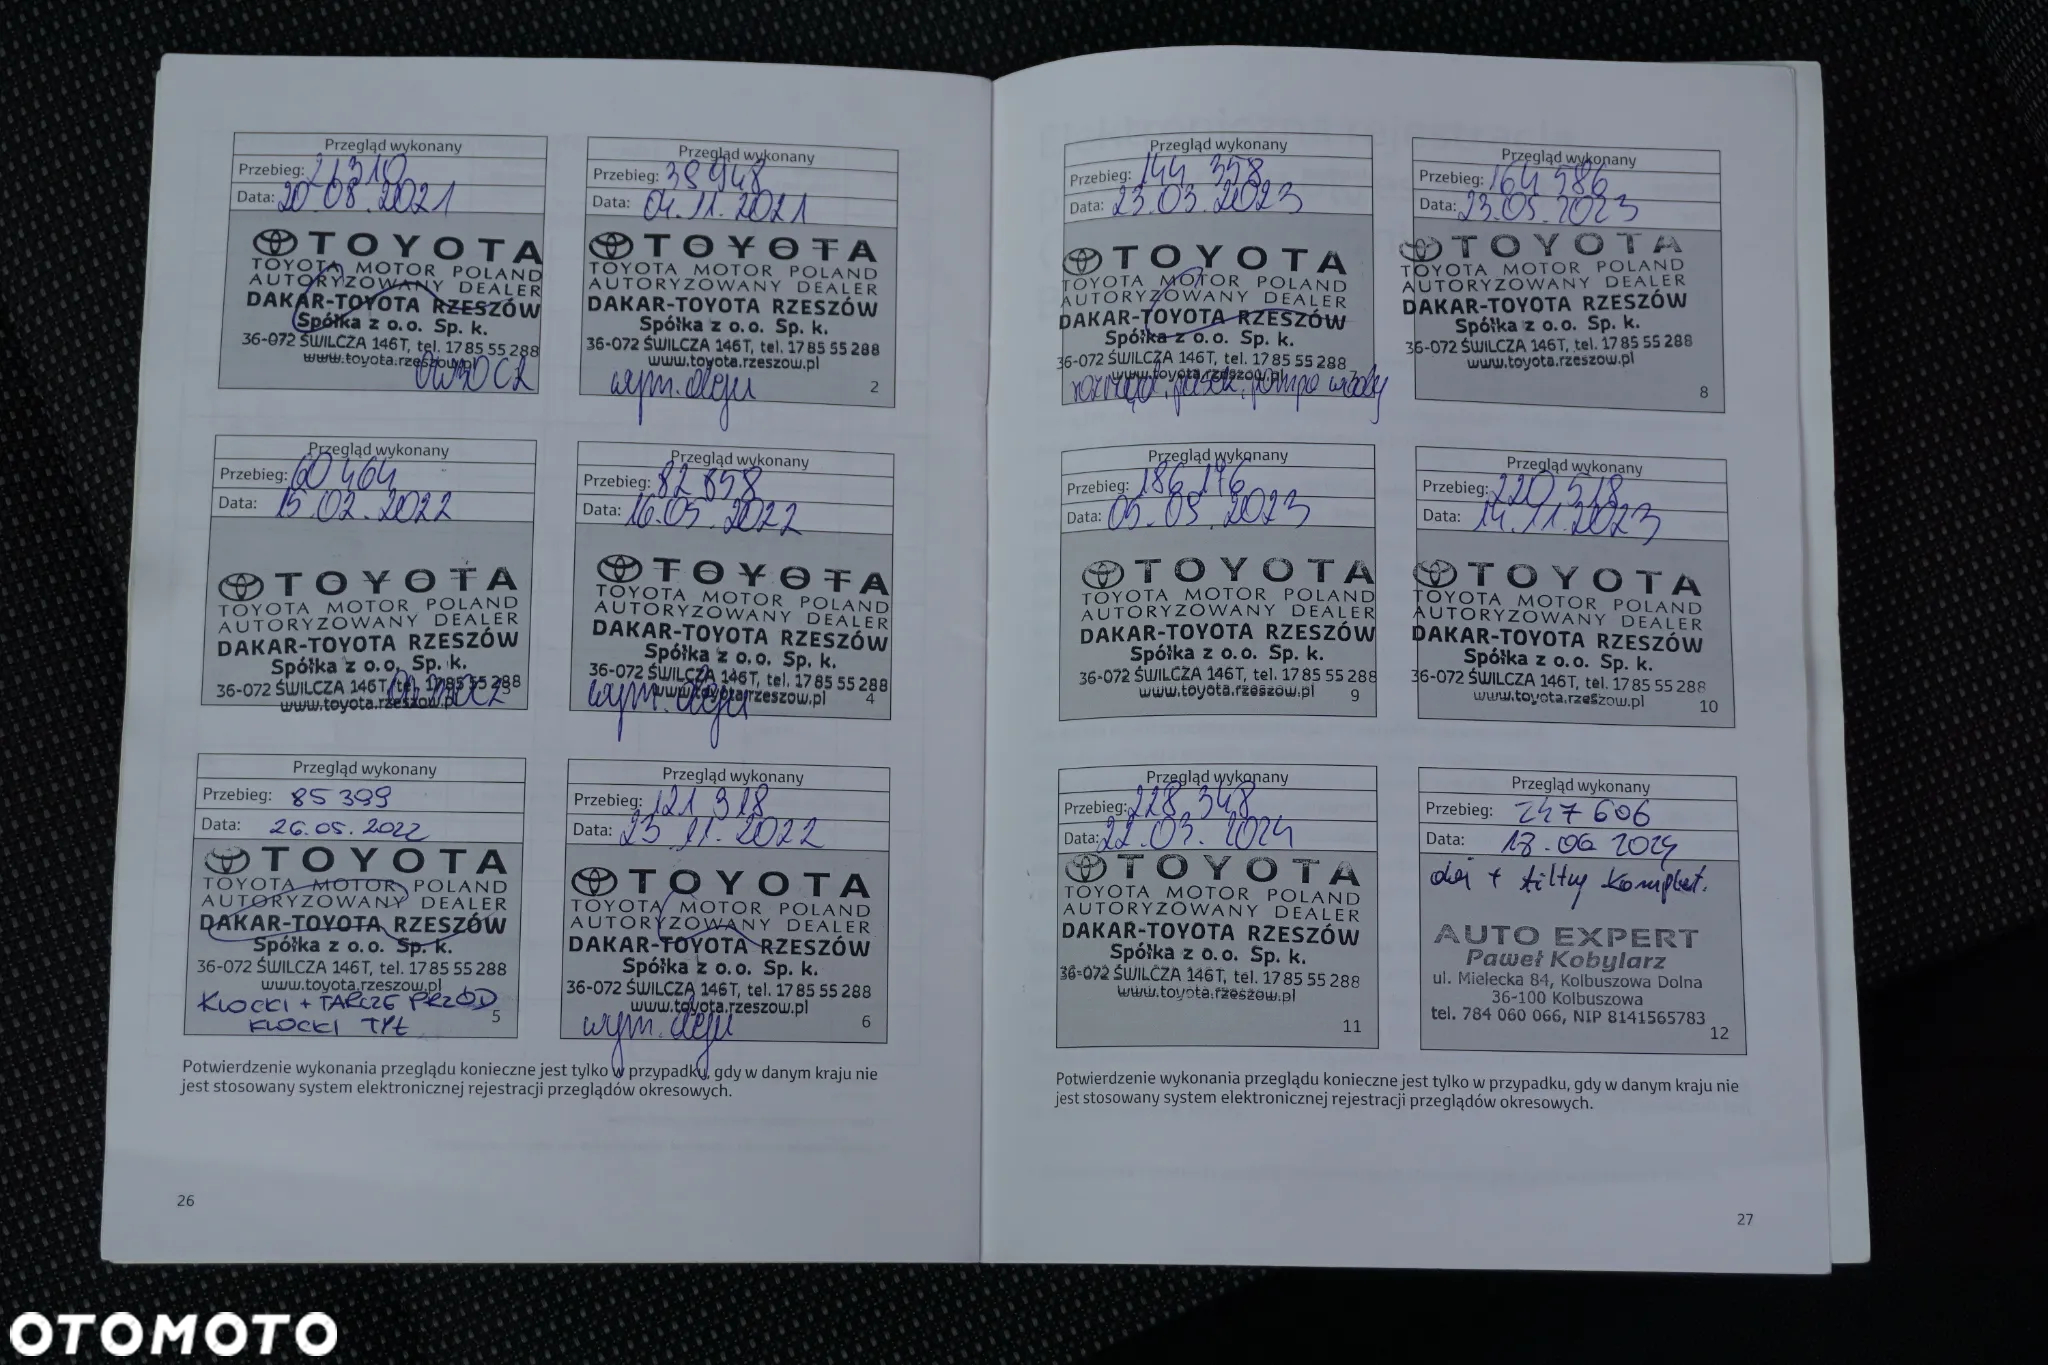 Przegląd wykonany
Przebieg: 21310
Data: 20.08.2021
TOYOTA
TOYOTA MOTOR POLAND
AUTORYZOWANY DEALER
DAKAR-TOYOTA RZESZÓW
Spółka z o.o. Sp. k.
36-072 ŚWILCZA 146T, tel. 17 85 55 288
www.toyota.rzeszow.pl
Przegląd wykonany
Przebieg: 38948
Data: 04.11.2021
TOYOTA
TOYOTA MOTOR POLAND
AUTORYZOWANY DEALER
DAKAR-TOYOTA RZESZÓW
Spółka z o.o. Sp. k.
36-072 ŚWILCZA 146T, tel. 17 85 55 288
www.toyota.rzeszow.pl
wym. oleju
2
Przegląd wykonany
Przebieg: 60464
Data: 15.02.2022
TOYOTA
TOYOTA MOTOR POLAND
AUTORYZOWANY DEALER
DAKAR-TOYOTA RZESZÓW
Spółka z o.o. Sp. k.
36-072 ŚWILCZA 146T, tel. 17 85 55 288
www.toyota.rzeszow.pl
3
Przegląd wykonany
Przebieg: 82 858
Data: 16.05.2022
TOYOTA
TOYOTA MOTOR POLAND
AUTORYZOWANY DEALER
DAKAR-TOYOTA RZESZÓW
Spółka z o.o. Sp. k.
36-072 ŚWILCZA 146T, tel. 17 85 55 288
www.toyota.rzeszow.pl
wym. oleju
4
Przegląd wykonany
Przebieg: 85 399
Data: 26.05.2022
TOYOTA
TOYOTA MOTOR POLAND
AUTORYZOWANY DEALER
DAKAR-TOYOTA RZESZÓW
Spółka z o.o. Sp. k.
36-072 ŚWILCZA 146T, tel. 17 85 55 288
www.toyota.rzeszow.pl
KLOCKI + TARCZE PRZÓD
KLOCKI TYŁ
5
Przegląd wykonany
Przebieg: 121 318
Data: 23.11.2022
TOYOTA
TOYOTA MOTOR POLAND
AUTORYZOWANY DEALER
DAKAR-TOYOTA RZESZÓW
Spółka z o.o. Sp. k.
36-072 ŚWILCZA 146T, tel. 17 85 55 288
www.toyota.rzeszow.pl
wym. oleju
6
Potwierdzenie wykonania przeglądu konieczne jest tylko w przypadku, gdy w danym kraju nie
jest stosowany system elektronicznej rejestracji przeglądów okresowych.
26
Przegląd wykonany
Przebieg: 144 358
Data: 23.03.2023
TOYOTA
TOYOTA MOTOR POLAND
AUTORYZOWANY DEALER
DAKAR-TOYOTA RZESZÓW
Spółka z o.o. Sp. k.
36-072 ŚWILCZA 146T, tel. 17 85 55 288
www.toyota.rzeszow.pl
7
rozrząd, pasek, pompa wody
Przegląd wykonany
Przebieg: 164 586
Data: 23.05.2023
TOYOTA
TOYOTA MOTOR POLAND
AUTORYZOWANY DEALER
DAKAR-TOYOTA RZESZÓW
Spółka z o.o. Sp. k.
36-072 ŚWILCZA 146T, tel. 17 85 55 288
www.toyota.rzeszow.pl
8
Przegląd wykonany
Przebieg: 186 176
Data: 05.09.2023
TOYOTA
TOYOTA MOTOR POLAND
AUTORYZOWANY DEALER
DAKAR-TOYOTA RZESZÓW
Spółka z o.o. Sp. k.
36-072 ŚWILCZA 146T, tel. 17 85 55 288
www.toyota.rzeszow.pl
9
Przegląd wykonany
Przebieg: 220 518
Data: 14.11.2023
TOYOTA
TOYOTA MOTOR POLAND
AUTORYZOWANY DEALER
DAKAR-TOYOTA RZESZÓW
Spółka z o.o. Sp. k.
36-072 ŚWILCZA 146T, tel. 17 85 55 288
www.toyota.rzeszow.pl
10
Przegląd wykonany
Przebieg: 228 348
Data: 22.03.2024
TOYOTA
TOYOTA MOTOR POLAND
AUTORYZOWANY DEALER
DAKAR-TOYOTA RZESZÓW
Spółka z o.o. Sp. k.
36-072 ŚWILCZA 146T, tel. 17 85 55 288
www.toyota.rzeszow.pl
11
Przegląd wykonany
Przebieg: 247 606
Data: 18.06 2024
olej + filtry komplet.
AUTO EXPERT
Paweł Kobylarz
ul. Mielecka 84, Kolbuszowa Dolna
36-100 Kolbuszowa
tel. 784 060 066, NIP 8141565783
12
Potwierdzenie wykonania przeglądu konieczne jest tylko w przypadku, gdy w danym kraju nie
jest stosowany system elektronicznej rejestracji przeglądów okresowych.
27
OTOMOTO